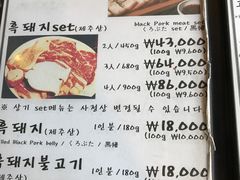 흑돼지set(제주산)
Black Pork meat set
くろぶた set / 黑豬
2人/450g ₩43,000
(100g ₩9,600)
3人/680g ₩64,000
(100g ₩9,500)
4人/900g ₩86,000
(100g ₩9,600)
※ 상기 set메뉴는 사정상 변경될 수 있습니
흑돼지(제주산) 1인분/180g ₩18,000
Black Pork belly / くろぶた / 黑豬 (100g ₩10,000)
흑돼지불고기 1인분/180g ₩18,000